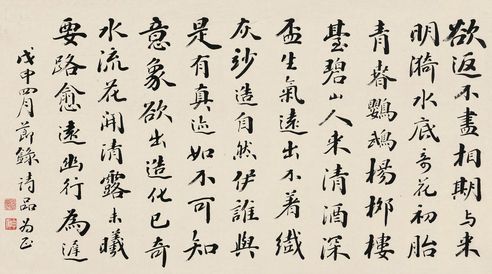 欲返不盡相期与来
明漪水底奇花初胎
青春鸚鵡楊柳樓
臺碧山人来清酒深
盃生氣遠出不著纖
灰妙造自然伊誰與
是有真迹如不可知
意象欲出造化已奇
水流花開清露未曦
要路愈遠幽行為遲
戊申四月節錄詩品